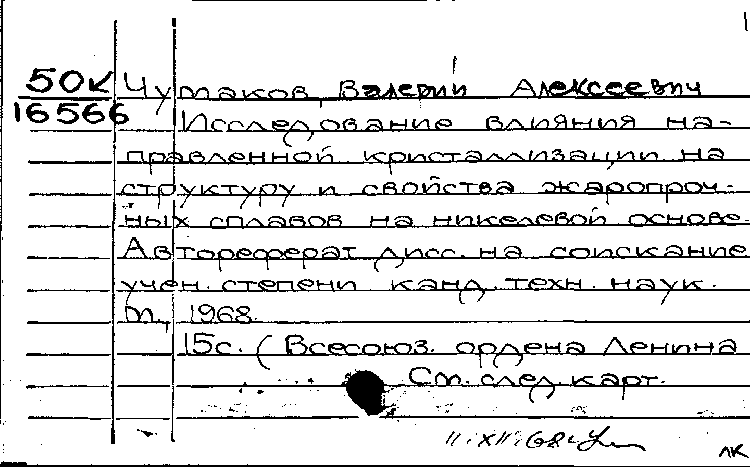 50к Чумаков, Валерий Алексеевич
16566
Исследование влияния на-
правленной кристаллизации на
структуру и свойства жаропроч-
ных сплавов на никелевой основе
Автореферат дисс. на соискание
учен. степени канд. техн. наук.
М., 1968.
15с. (Всесоюз. ордена Ленина
См. след. карт.
11.XII.68г.
лк